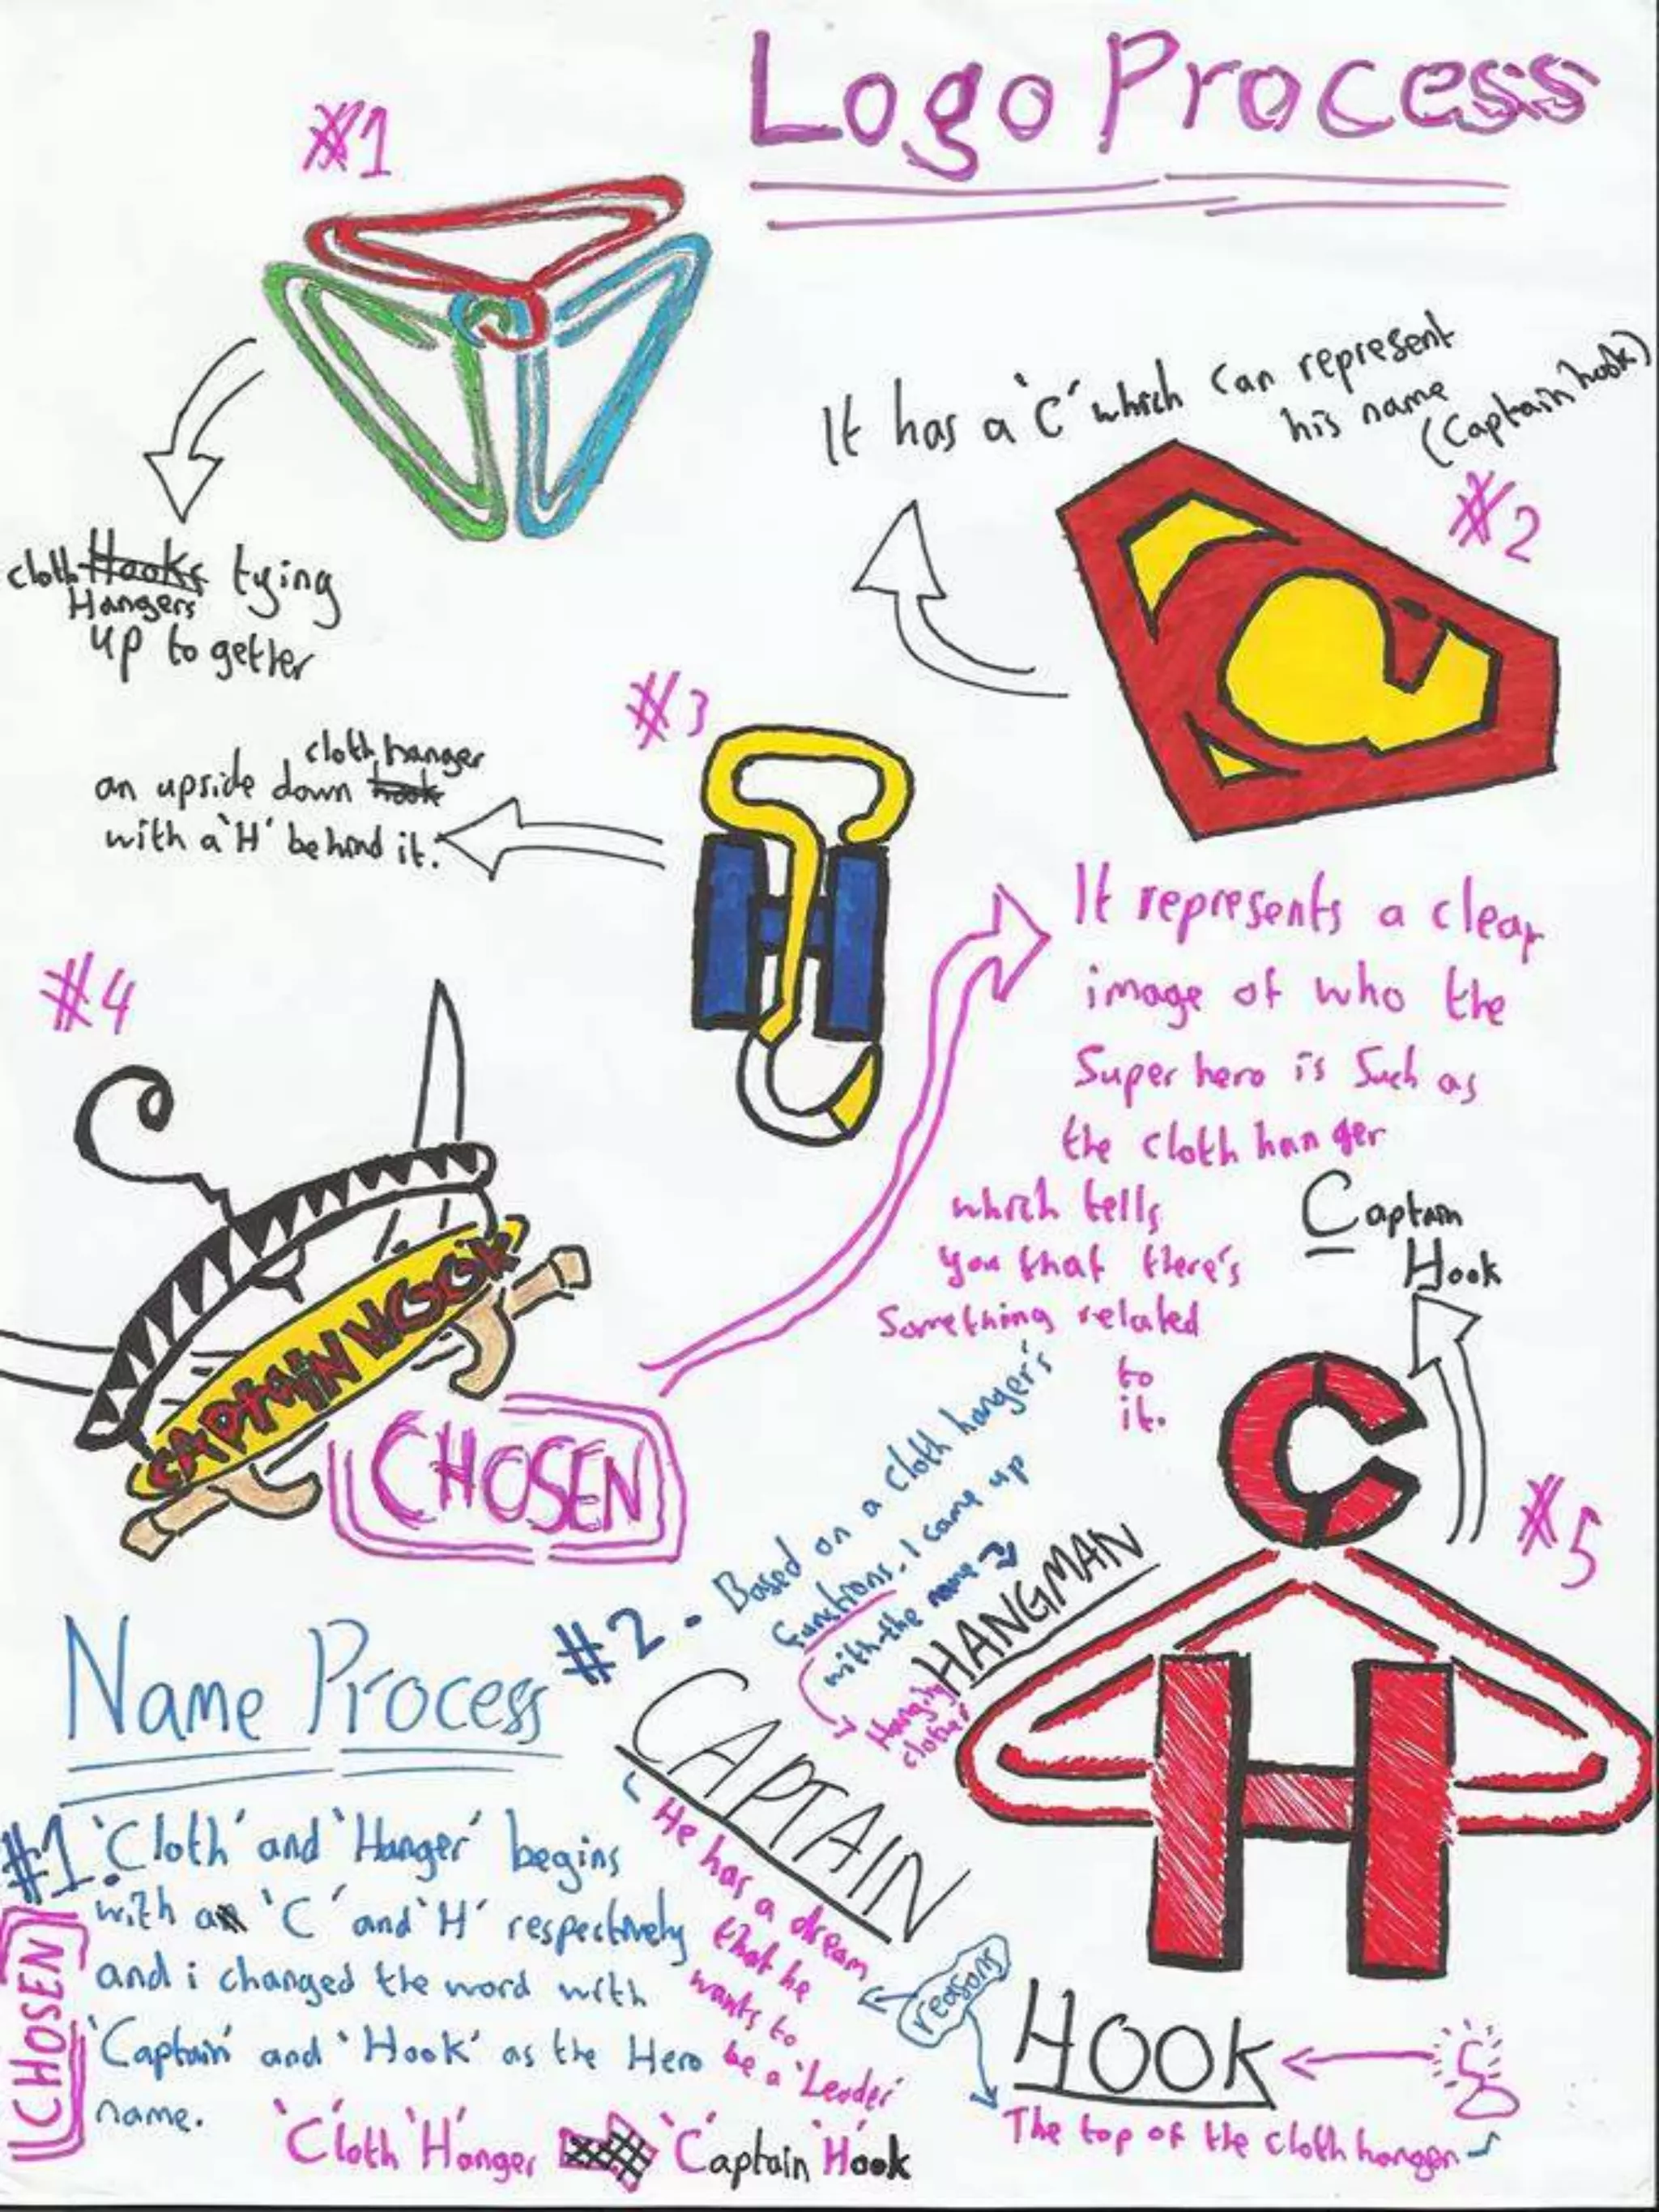 Logo Process
#1
cloth Hooks tying
Hangers
up together
It has a 'C' which can represent
his name
(Captain hook)
#2
#3
cloth hanger
an upside down hook
with a 'H' behind it.
#4
CAPTAIN HOOK
CHOSEN
It represents a clear
image of who the
Super hero is Such as
the cloth hanger
which tells
you that there's
Something related
to
it.
Captain
Hook
#5
C
H
Name Process
#1. 'Cloth' and 'Hanger' begins
with an 'C' and 'H' respectively
and i changed the word with
'Captain' and 'Hook' as the Hero
name.
CHOSEN
'C'loth 'H'anger 'C'aptain 'H'ook
#2 - Based on a cloth hanger's
functions, I came up
with the name
HANGMAN
Hang
clothes
CAPTAIN
He has a dream
that he
wants to
be a 'Leader'
reasons
HOOK
The top of the cloth hanger